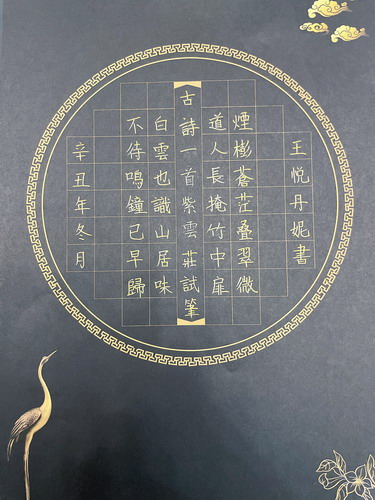 王悦丹妮書
煙樹蒼茫叠翠微
道人長掩竹中扉
古詩一首紫雲莊試筆
白雲也識山居味
不待鳴鐘已早歸
辛丑年冬月